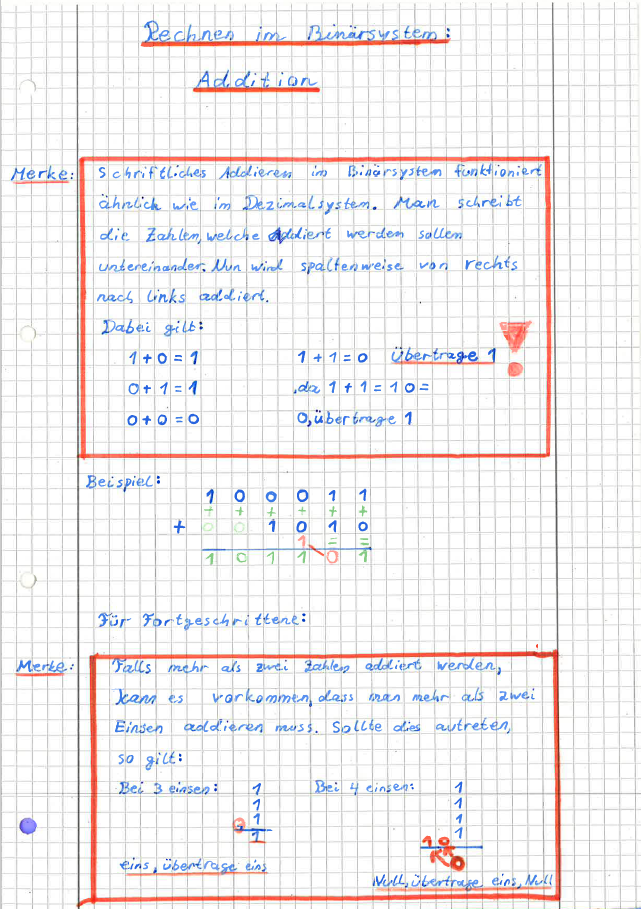 Rechnen im Binärsystem:
Addition
Merke:
Schriftliches Addieren im Binärsystem funktioniert
ähnlich wie im Dezimalsystem. Man schreibt
die Zahlen, welche Addiert werden sollen
untereinander. Nun wird spaltenweise von rechts
nach links addiert.
Dabei gilt:
1 + 0 = 1 1 + 1 = 0 Übertrage 1
0 + 1 = 1 ,da 1 + 1 = 1 0 =
0 + 0 = 0 0, übertrage 1
Beispiel:
1 0 0 0 1 1
+ + + + + +
+ 0 0 1 0 1 0
1 = =
1 0 1 1 0 1
Für Fortgeschrittene:
Merke:
Falls mehr als zwei Zahlen addiert werden,
kann es vorkommen, dass man mehr als zwei
Einsen addieren muss. Sollte dies autreten,
so gilt:
Bei 3 einsen: 1 Bei 4 einsen: 1
1 1
1 1
1 1
1 0
0
eins, übertrage eins
Null, übertrage eins, Null